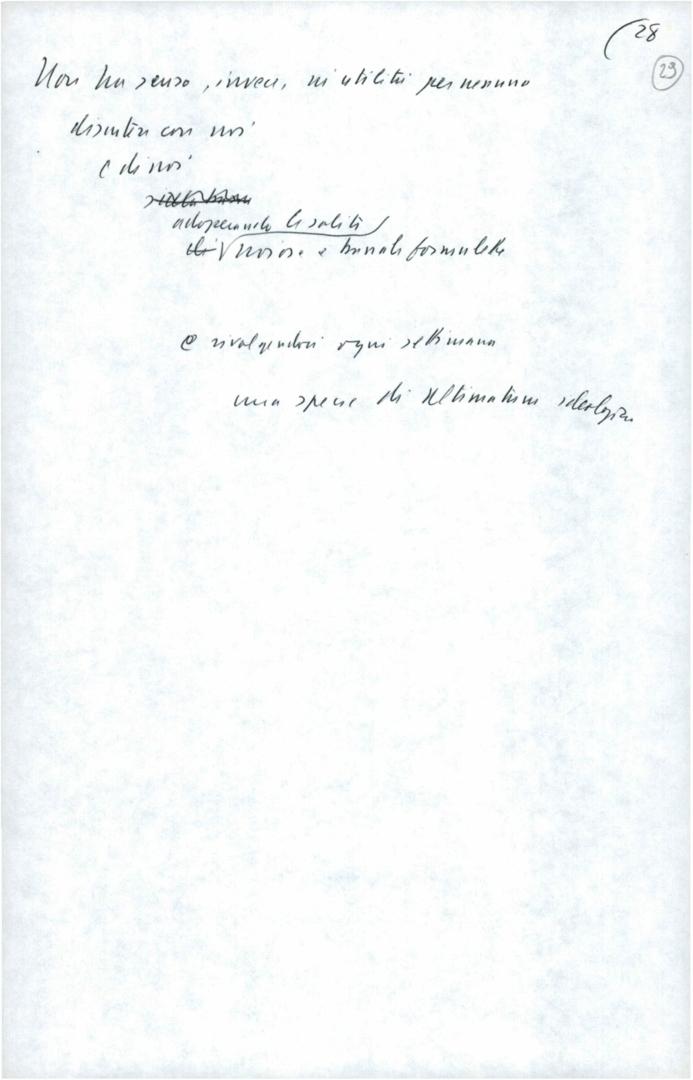 28
29
Non ha senso, invece, nè utilità per nessuno
discutere con noi
e di noi
adoperando le solite
noiose e banali formulette
e rivolgendoci ogni settimana
una specie di ultimatum ideologico